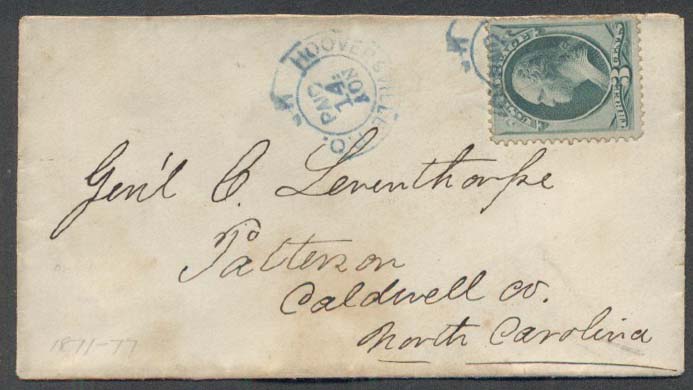 HOOVERSVILLE P.O.
PAID
14
NOV
Gen'l C. Leventhorpe
Patterson
Caldwell co.
North Carolina
1871-77